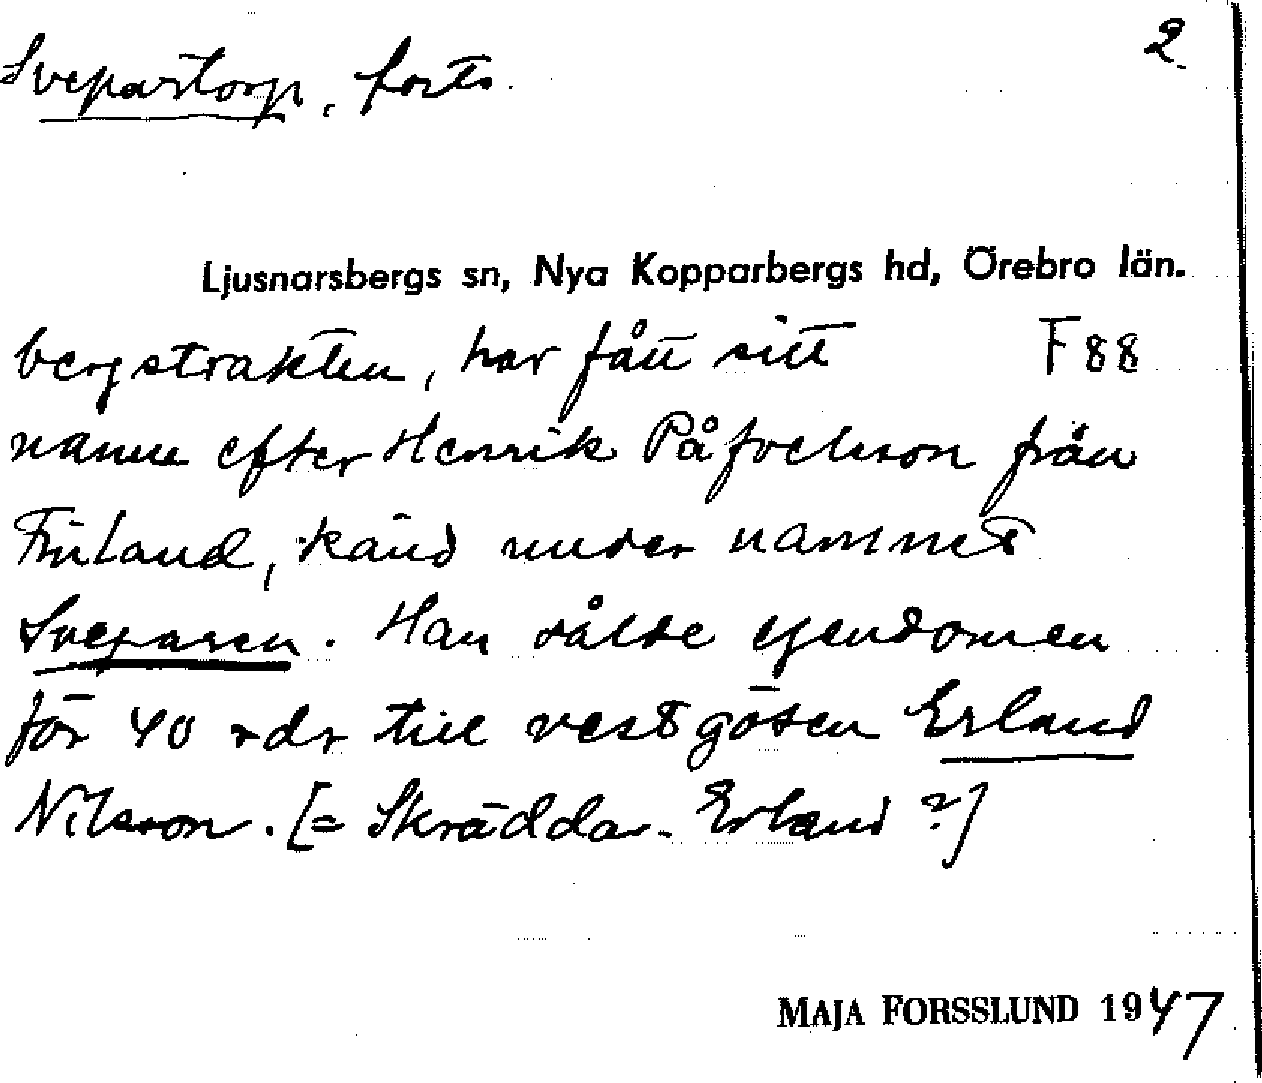 Svepartorp, forts.
2.
Ljusnarsbergs sn, Nya Kopparbergs hd, Örebro län.
bergstrakten, har fått sitt F 88
namn efter Henrik Påfvelsson från
Finland, känd under namnet
Sveparen. Han sålde egendomen
för 40 rdr till vestgöten Erland
Nilsson. [= Skräddar-Erland ?]
MAJA FORSSLUND 1947